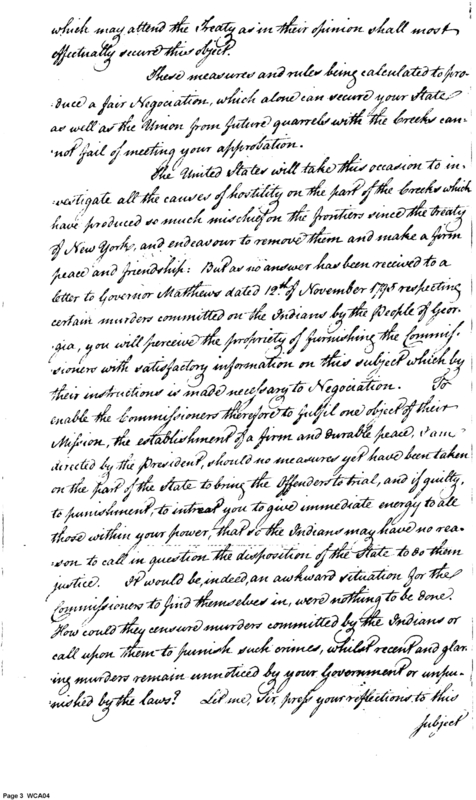 which may attend the Treaty as in their opinion shall most
effectually secure this object.
These measures and rules being calculated to pro-
duce a fair Negociation, which alone can secure your State
as well as the Union from future quarrels with the Creeks can-
not fail of meeting your approbation.
The United States will take this occasion to in-
vestigate all the causes of hostility on the part of the Creeks which
have produced so much mischief on the frontiers since the treaty
of New York, and endeavour to remove them and make a firm
peace and friendship: But as no answer has been received to a
letter to Governor Matthews dated 12th of November 1795 respecting
certain murders committed on the Indians by the People of Geor-
gia, you will perceive the propriety of furnishing the Commis-
sioners with satisfactory information on this subject which by
their instructions is made necessary to Negociation. To
enable the Commissioners therefore to fulfil one object of their
Mission, the establishment of a firm and durable peace, I am
directed by the President, should no measures yet have been taken
on the part of the State to bring the Offenders to trial, and if guilty,
to punishment, to intreat you to give immediate energy to all
those within your power, that so the Indians may have no rea-
son to call in question the disposition of the State to do them
justice. It would be, indeed, an awkward situation for the
Commissioners to find themselves in, were nothing to be done.
How could they censure murders committed by the Indians or
call upon them to punish such crimes, whilst recent and glar-
ing murders remain unnoticed by your Government or unpu-
nished by the laws? Let me, Sir, press your reflections to this
subject
Page 3 WCA04